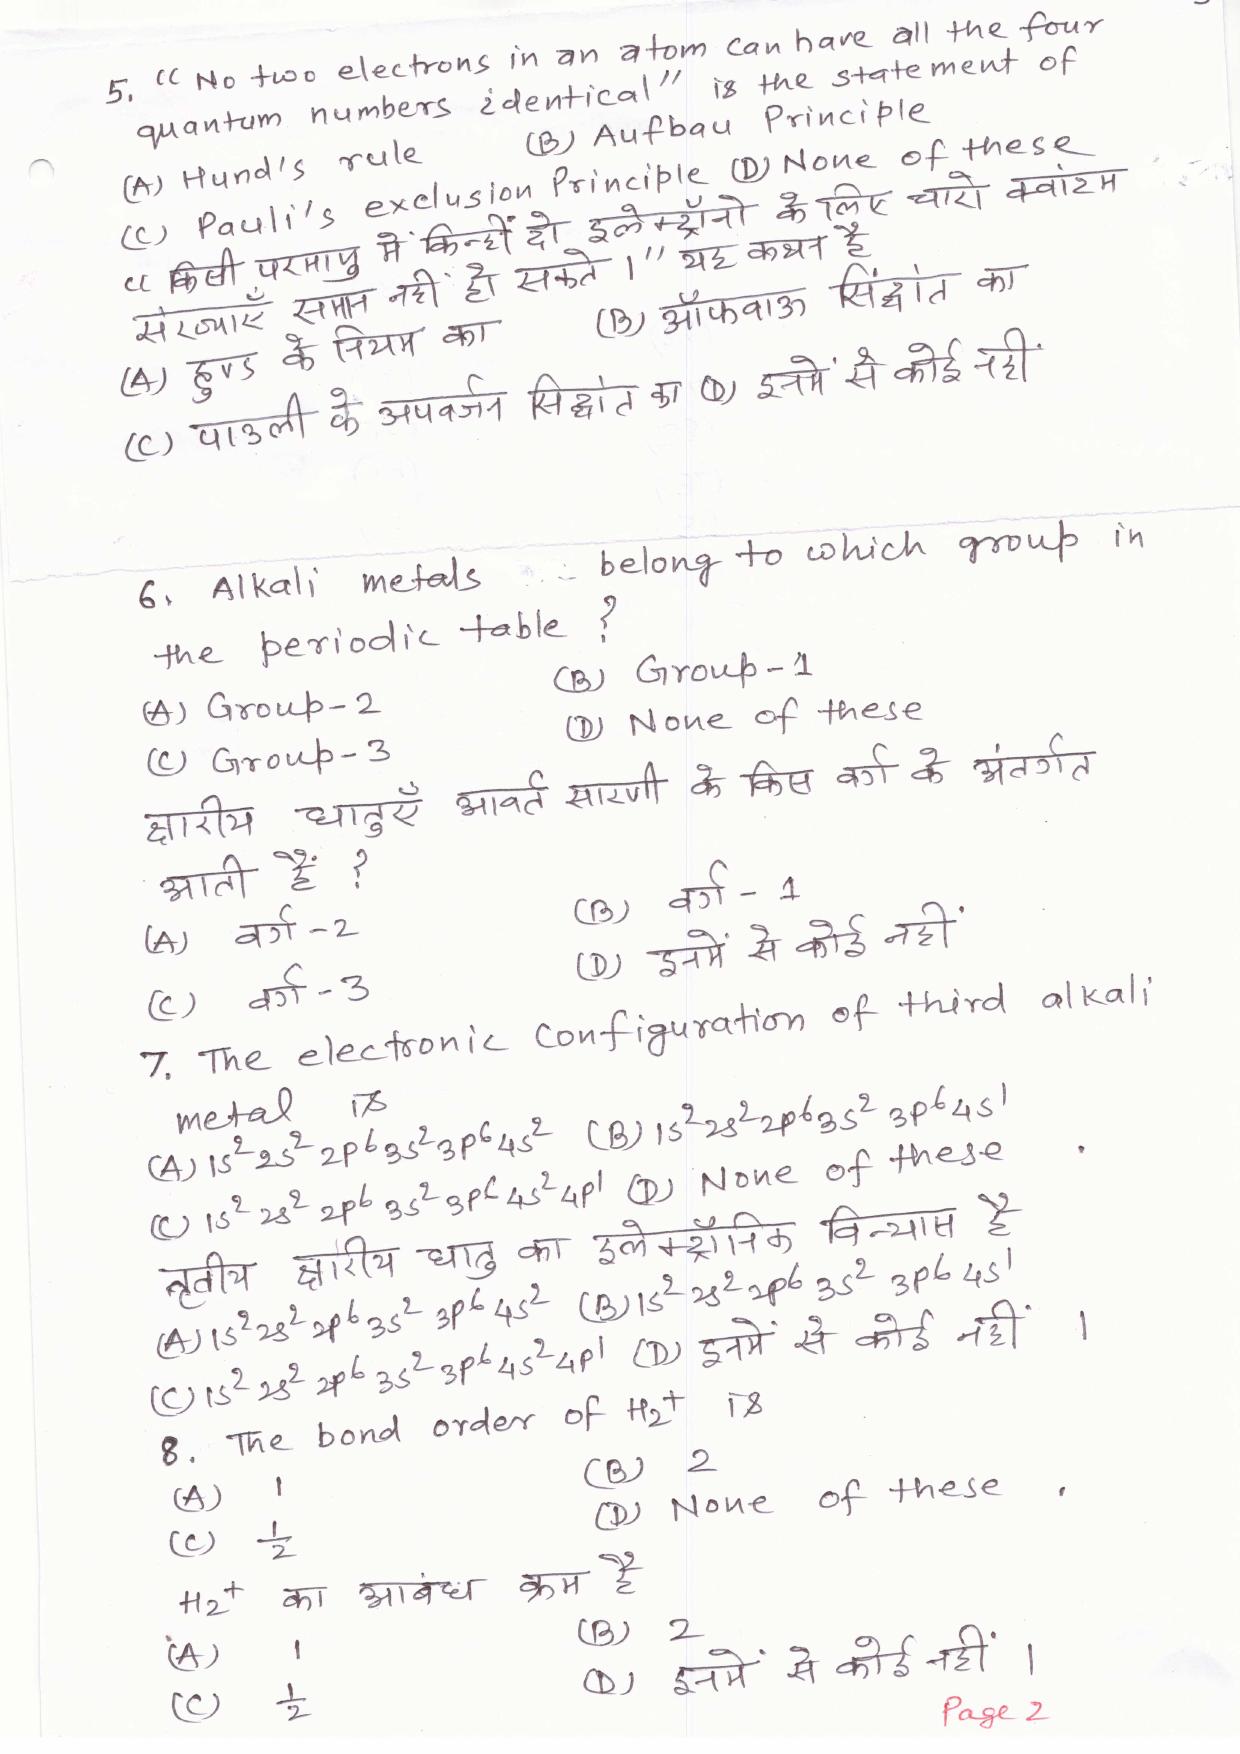 5. “No two electrons in an atom can have all the four
quantum numbers identical” is the statement of
(A) Hund's rule (B) Aufbau Principle
(C) Pauli's exclusion Principle (D) None of these
“किसी परमाणु में किन्हीं दो इलेक्ट्रॉनो के लिए चारो क्वांटम
संख्याएँ समान नहीं हो सकते।” यह कथन है
(A) हुण्ड के नियम का (B) ऑफवाऊ सिद्धांत का
(C) पाउली के अपवर्जन सिद्धांत का (D) इनमें से कोई नहीं
6. Alkali metals belong to which group in
the periodic table ?
(A) Group-2 (B) Group-1
(C) Group-3 (D) None of these
क्षारीय धातुएँ आवर्त सारणी के किस वर्ग के अंतर्गत
आती हैं ?
(A) वर्ग-2 (B) वर्ग-1
(C) वर्ग-3 (D) इनमें से कोई नहीं
7. The electronic configuration of third alkali
metal is
(A) 1s² 2s² 2p⁶ 3s² 3p⁶ 4s² (B) 1s² 2s² 2p⁶ 3s² 3p⁶ 4s¹
(C) 1s² 2s² 2p⁶ 3s² 3p⁶ 4s² 4p¹ (D) None of these .
तृतीय क्षारीय धातु का इलेक्ट्रॉनिक विन्यास है
(A) 1s² 2s² 2p⁶ 3s² 3p⁶ 4s² (B) 1s² 2s² 2p⁶ 3s² 3p⁶ 4s¹
(C) 1s² 2s² 2p⁶ 3s² 3p⁶ 4s² 4p¹ (D) इनमें से कोई नहीं ।
8. The bond order of H₂⁺ is
(A) 1 (B) 2
(C) ½ (D) None of these .
H₂⁺ का आबंध क्रम है
(A) 1 (B) 2
(C) ½ (D) इनमें से कोई नहीं ।
Page 2